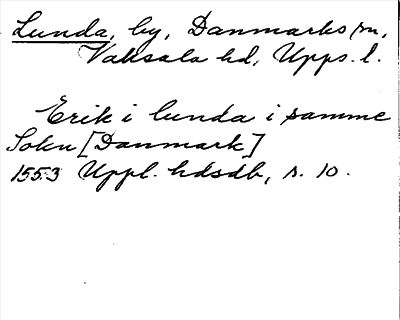 Lunda, by, Danmarks sn,
Vaksala hd, Upps. l.
Erik i lunda i samme
Sokn [Danmark]
1553 Uppl. hdsdb, s. 10.